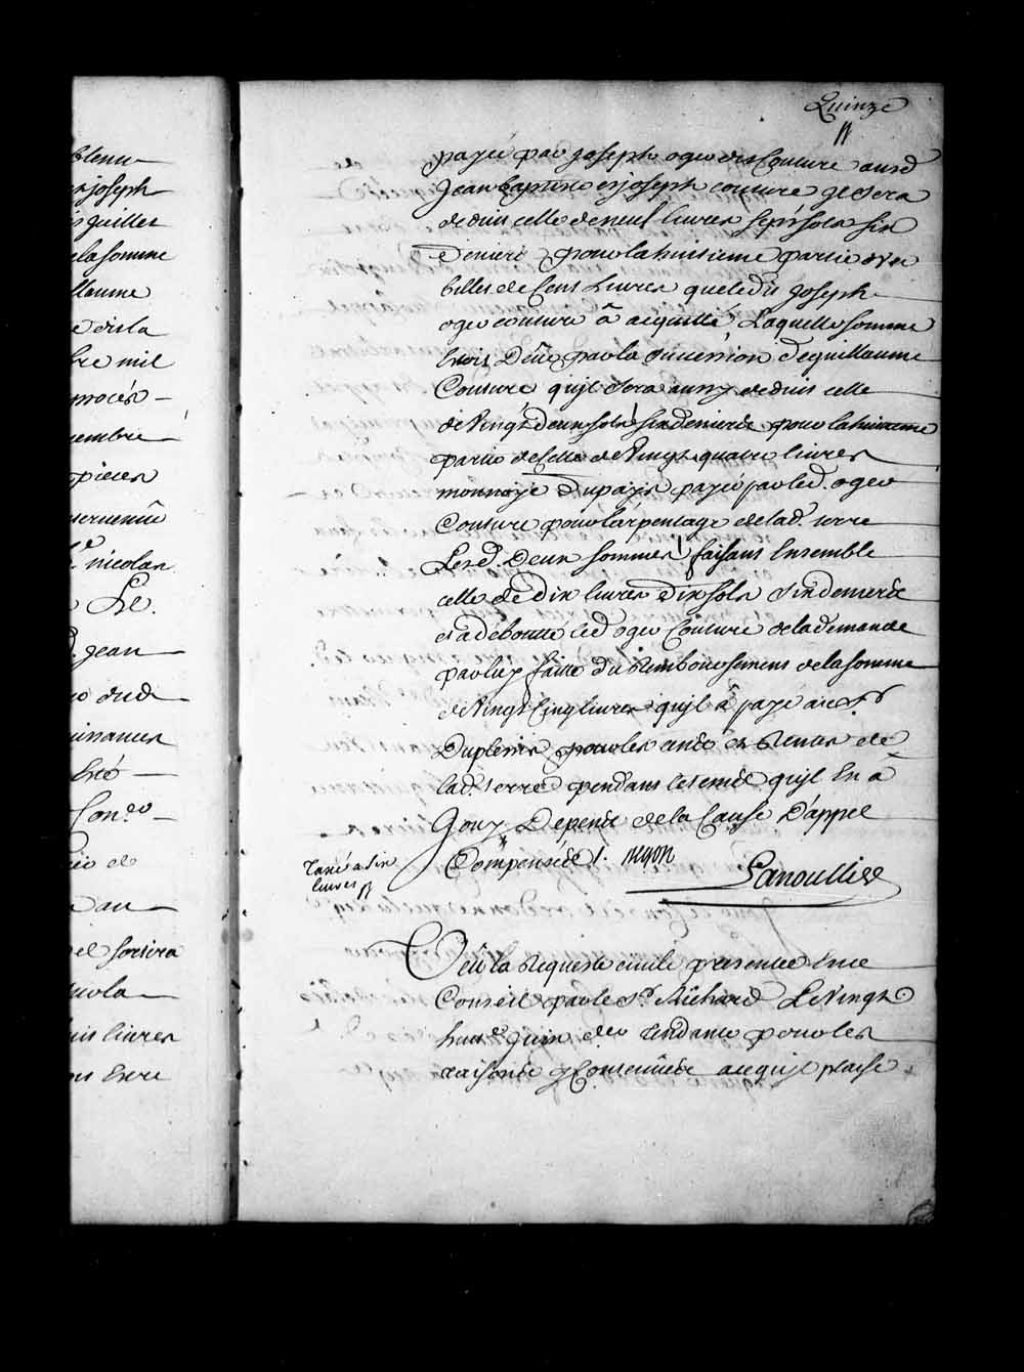 blenu
joseph
guillet
la somme
llaume
e de la
bre mil
procés
embre
pieces
nicolas
Le.
jean
sols livres
Quinze
payée par joseph oger dit Couture aud
Jean baptiste et joseph couture Il sera
deduit celle de neuf livres sept sols six
deniers pour la huitieme partie d'un
billet de Cent Livres que ledit joseph
oger couture â acquitté, Laquelle somme
Etoit Dûe par la succession de guillaume
Couture qu'il sera aussy deduit celle
de Vingt deux sols six deniers pour la huitieme
partie de Celle de Vingt quatre livres
monnoye Du pays payée par led. oger
Couture pour l'arpentage de lad. terre
Lesd. Deux sommes faisant Ensemble
celle de Dix livres Dix sols six deniers
et a debouté led oger Couture de la demande
par luy faite du Rembousement de la somme
de Vingt Cinq livres qu'il â payé au Sr
Duplessis pour les cens et Rentes de
lad. terre pendant le tems qu'il En a
Jouy Depens de la Cause D'appel
Compensés /. Begon
Taxé a six
livres
Lanoullier
Veü la Requeste civile presentée En ce
Conseil par le Sr. Richard Le Vingt
huit juin der. tendante pour les
raisons y Contenües a ce qu'il plaise